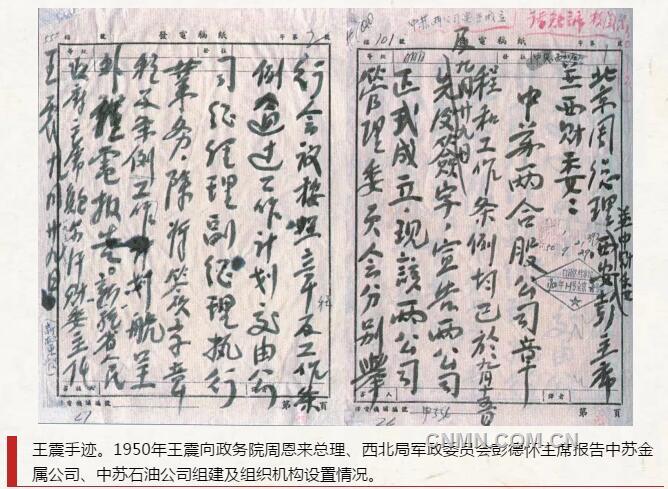 發電稿紙
北京周总理西安彭主席
並西财委：
中苏两合股公司章
程和工作条例均已於九月五日
九月廿九日
先后簽字，宣告两公司
正式成立，现該两公司
管理委员会分别舉
發電稿紙
行会议按照章及工作条
例通过工作计划交由公
司经理副经理执行
業务，除将簽字章
程及条例工作计划航呈
外謹电报告。新疆省人民
政府主席鲍尔汗财委主任
王震九月廿九日
CNMN.COM.CN
王震手迹。1950年王震向政务院周恩来总理、西北局军政委员会彭德怀主席报告中苏金
属公司、中苏石油公司组建及组织机构设置情况。